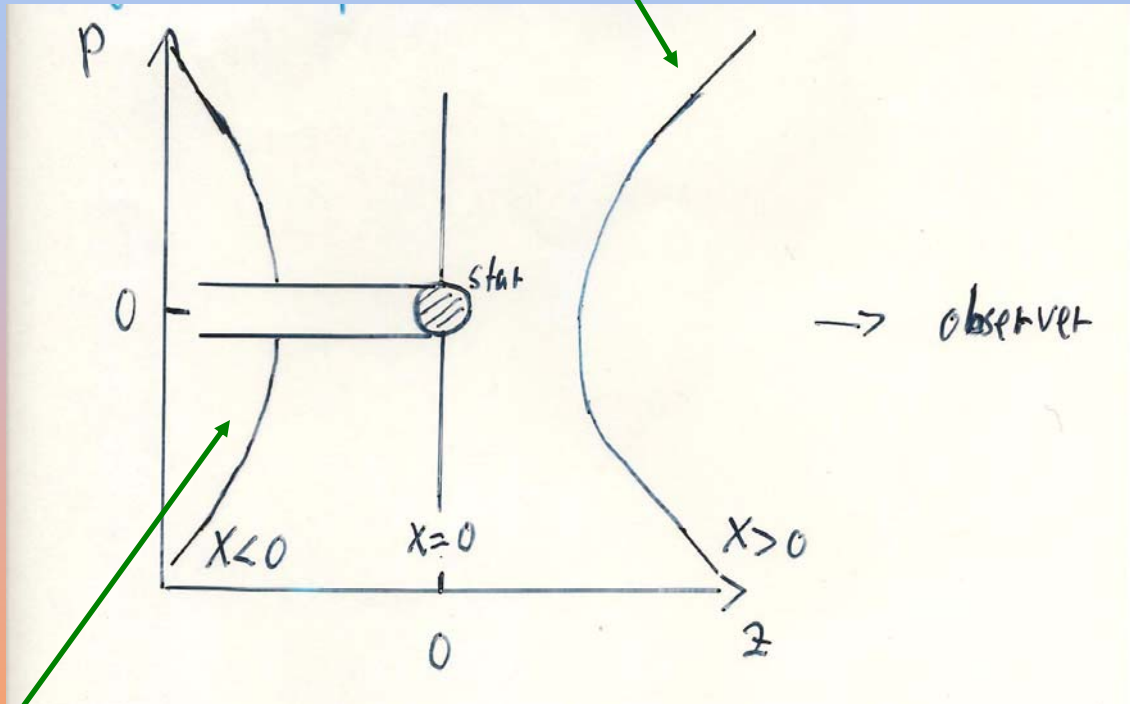 P
star
0
→ observer
X<0
X=0
X>0
0
z